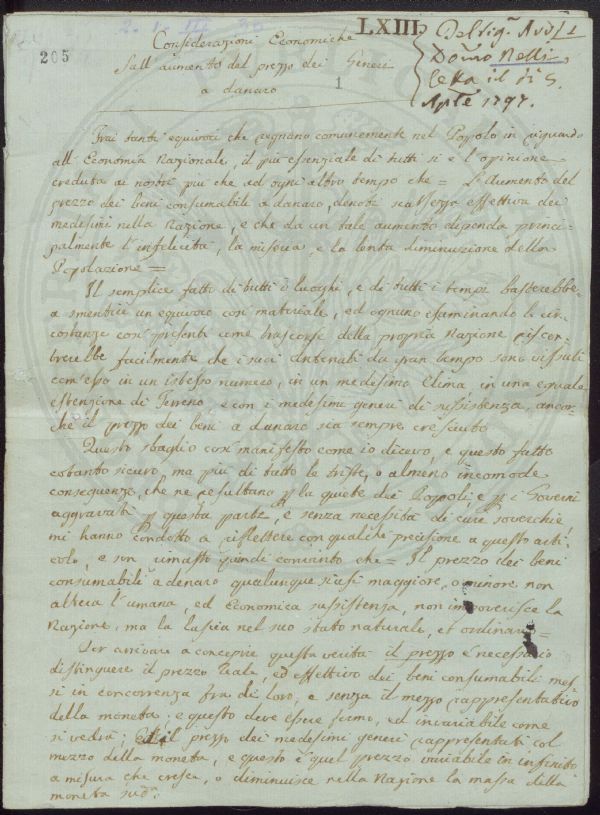 205
LXIII
Considerazioni Economiche
Sull'aumento del prezzo dei Generi
a danaro
1
Del Sig.r Aud.re
Nelli
Letta il dì 5
Aple 1797.
Frai tanti equivoci che regnano comunemente nel Popolo in riguardo
all'Economia Nazionale, il più essenziale di tutti si è l'opinione
creduta ai nostri più che ad ogni altro tempo che = L'aumento del
prezzo dei beni consumabili a danaro, denoti scarsezza effettiva dei
medesimi nella Nazione, e che da un tale aumento dipenda princi-
palmente l'infelicità, la miseria, e la lenta diminuzione della
Popolazione =
Il semplice fatto di tutti i luoghi, e di tutti i tempi basterebbe
a smentire un equivoco così materiale, ed ognuno esaminando le cir-
costanze così presenti come trascorse della propria Nazione riscon-
trerebbe facilmente che i suoi Antenati da gran tempo sono vissuti
com'esso in un istesso numero, in un medesimo clima in una eguale
estenzione di Terreno, e con i medesimi generi di sussistenza, ancor-
chè il prezzo dei beni a danaro sia sempre cresciuto
Questo sbaglio così manifesto come io dicevo, e questo fatto
cotanto sicuro, ma più di tutto le triste, o almeno incomode
conseguenze, che ne resultano p la quiete dei Popoli, e p i Governi
aggravati p questa parte, e senza necessità di cure soverchie,
mi hanno condotto a riflettere con qualche precisione a questo arti-
colo, e son rimasto quindi convinto che = Il prezzo dei beni
consumabili a denaro qualunque siasi maggiore, o minore non
altera l'umana, ed Economica sussistenza, non impoverisce la
Nazione, ma la lascia nel suo stato naturale, et ordinario =
Per arrivare a concepire questa verità il prezzo è necessario
distinguere il prezzo reale, ed effettivo dei beni consumabili mes-
si in concorrenza fra di loro, e senza il mezzo rappresentativo
della moneta, e questo deve essere fermo, ed invariabile come
si vedrà; ed il prezzo dei medesimi generi rappresentati col
mezzo della moneta, e questo è quel prezzo variabile in infinito
a misura che cresca, o diminuisce nella Nazione la massa della
moneta sud.a